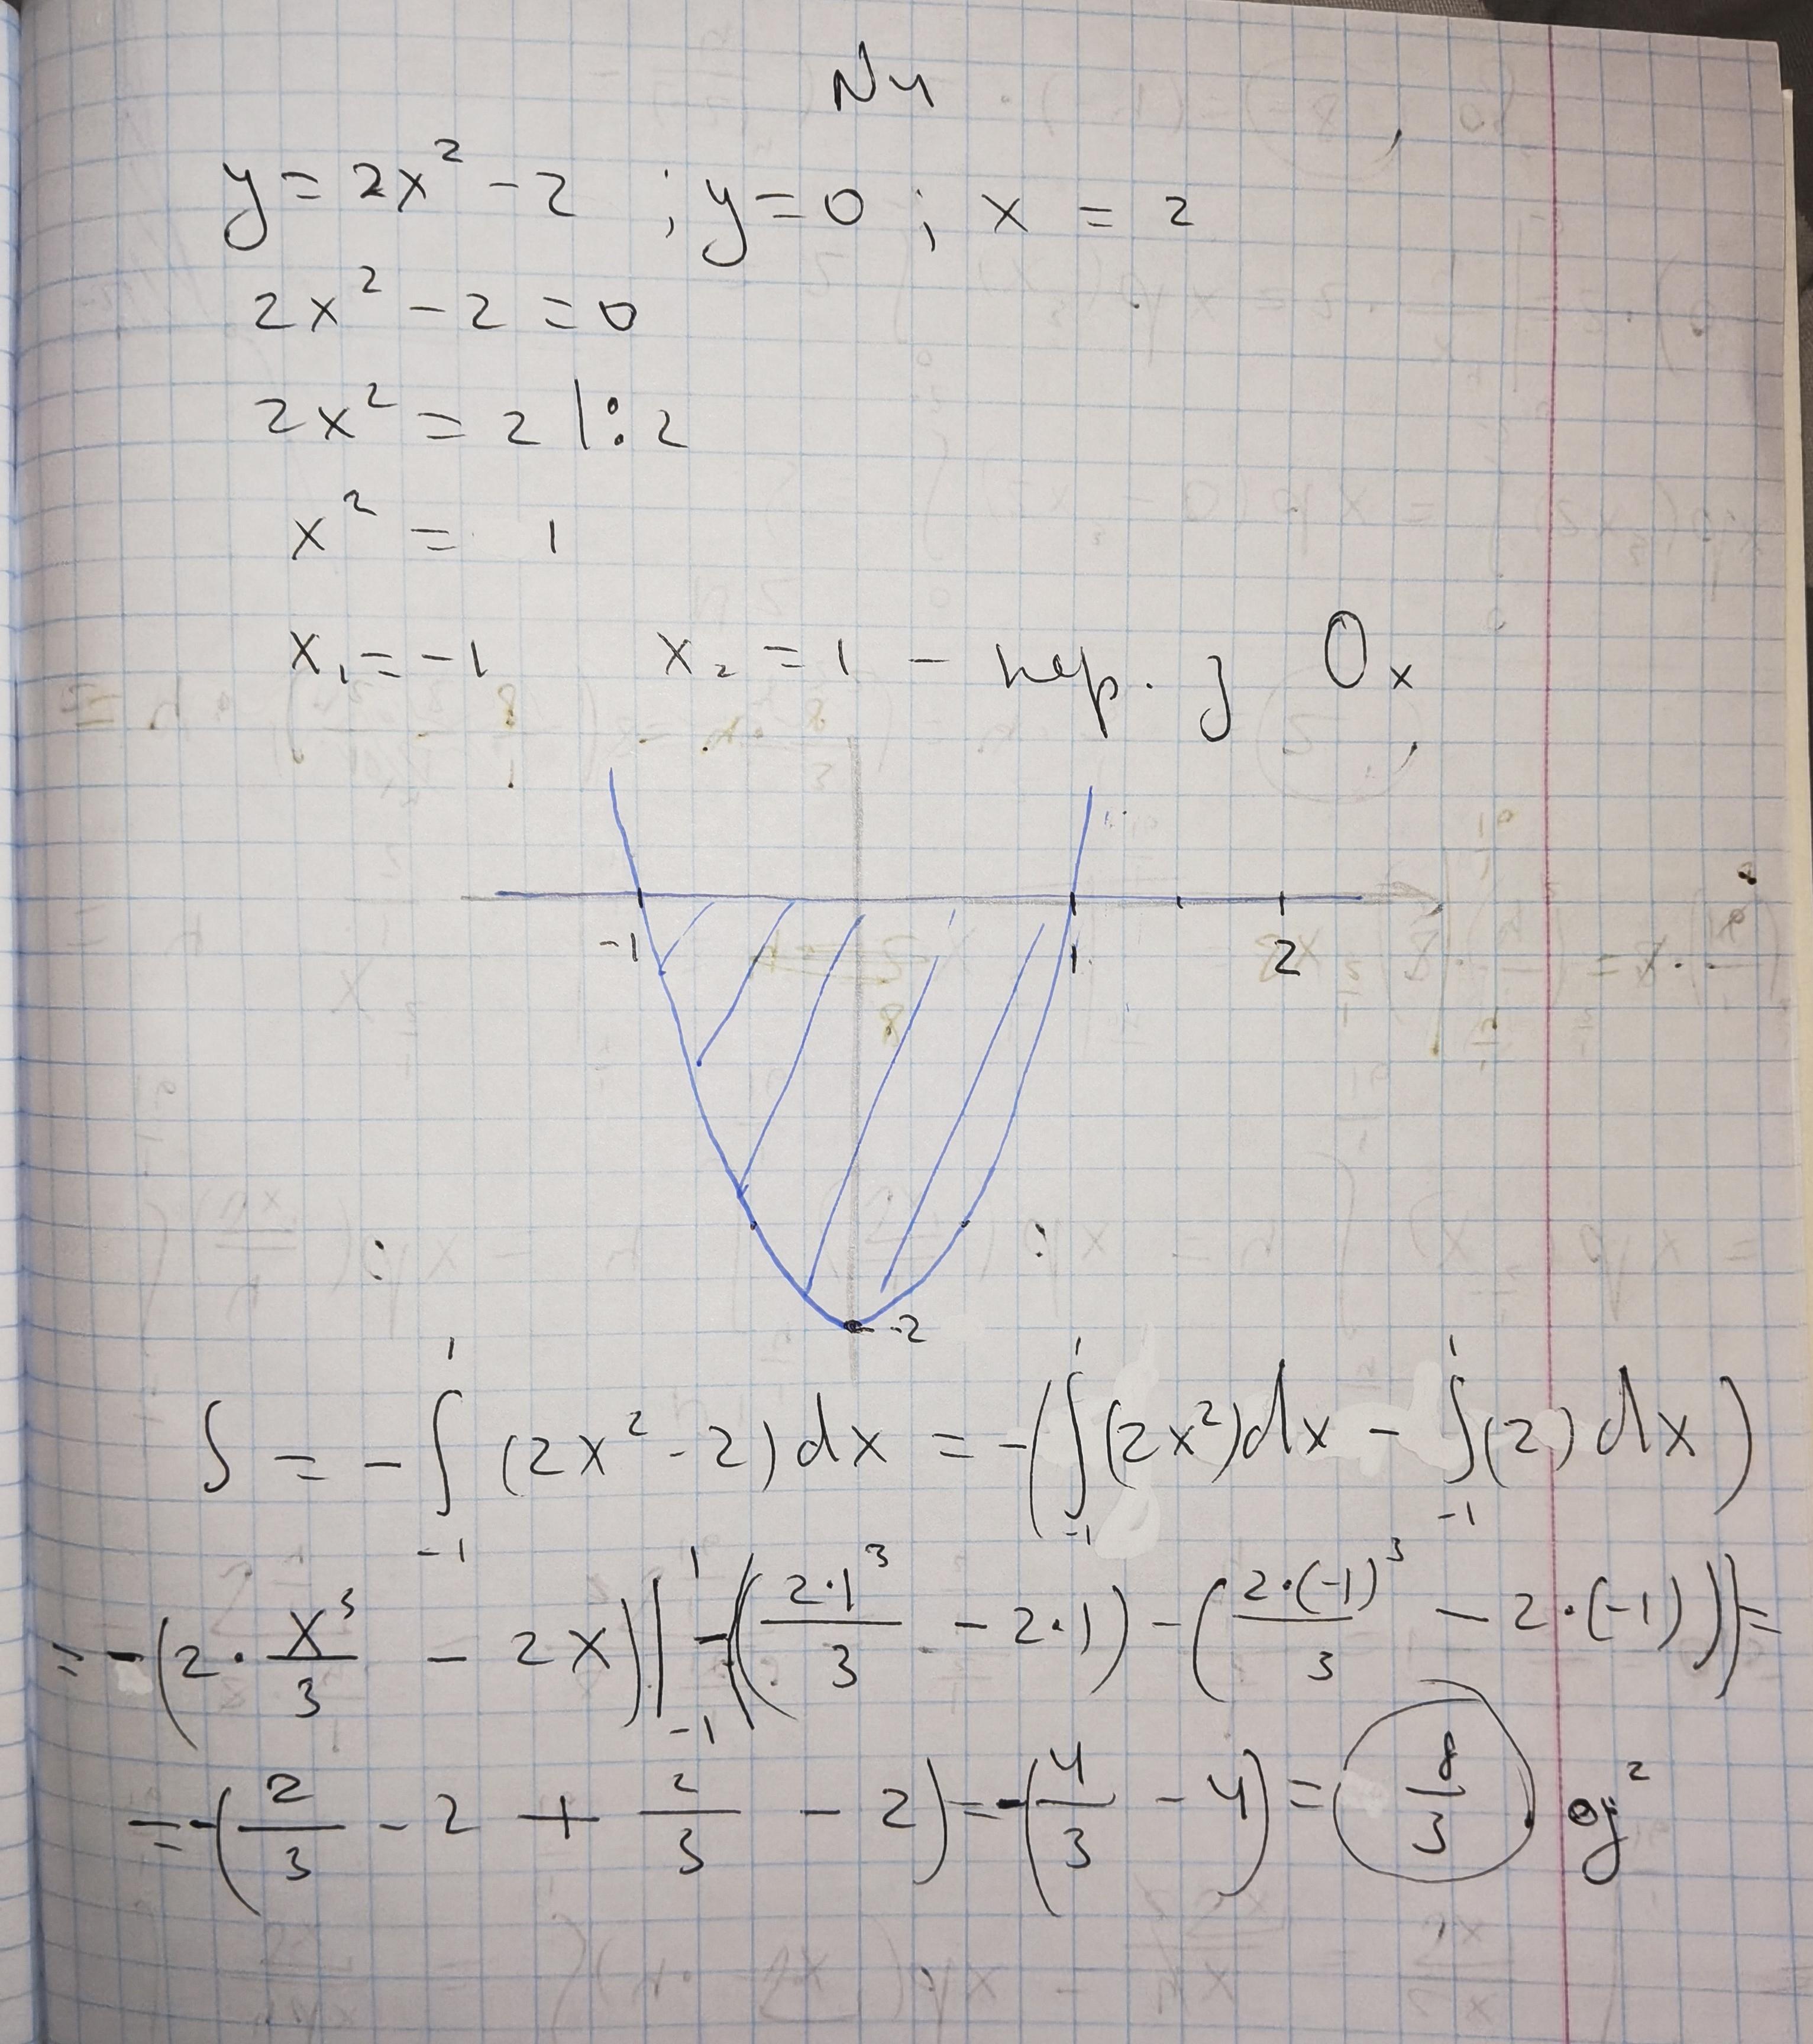 N4
y = 2x² - 2 ; y = 0 ; x = 2
2x² - 2 = 0
2x² = 2 |:2
x² = 1
x₁ = -1 x₂ = 1 - пер. з Ox
-1 1 2
-2
S = -∫₋₁¹ (2x² - 2) dx = -(∫₋₁¹ (2x²) dx - ∫₋₁¹ (2) dx)
= -(2 · x³/3 - 2x)|₋₁¹ = -((2·1³/3 - 2·1) - (2·(-1)³/3 - 2·(-1))) =
= -(2/3 - 2 + 2/3 - 2) = -(4/3 - 4) = 8/3 . од²